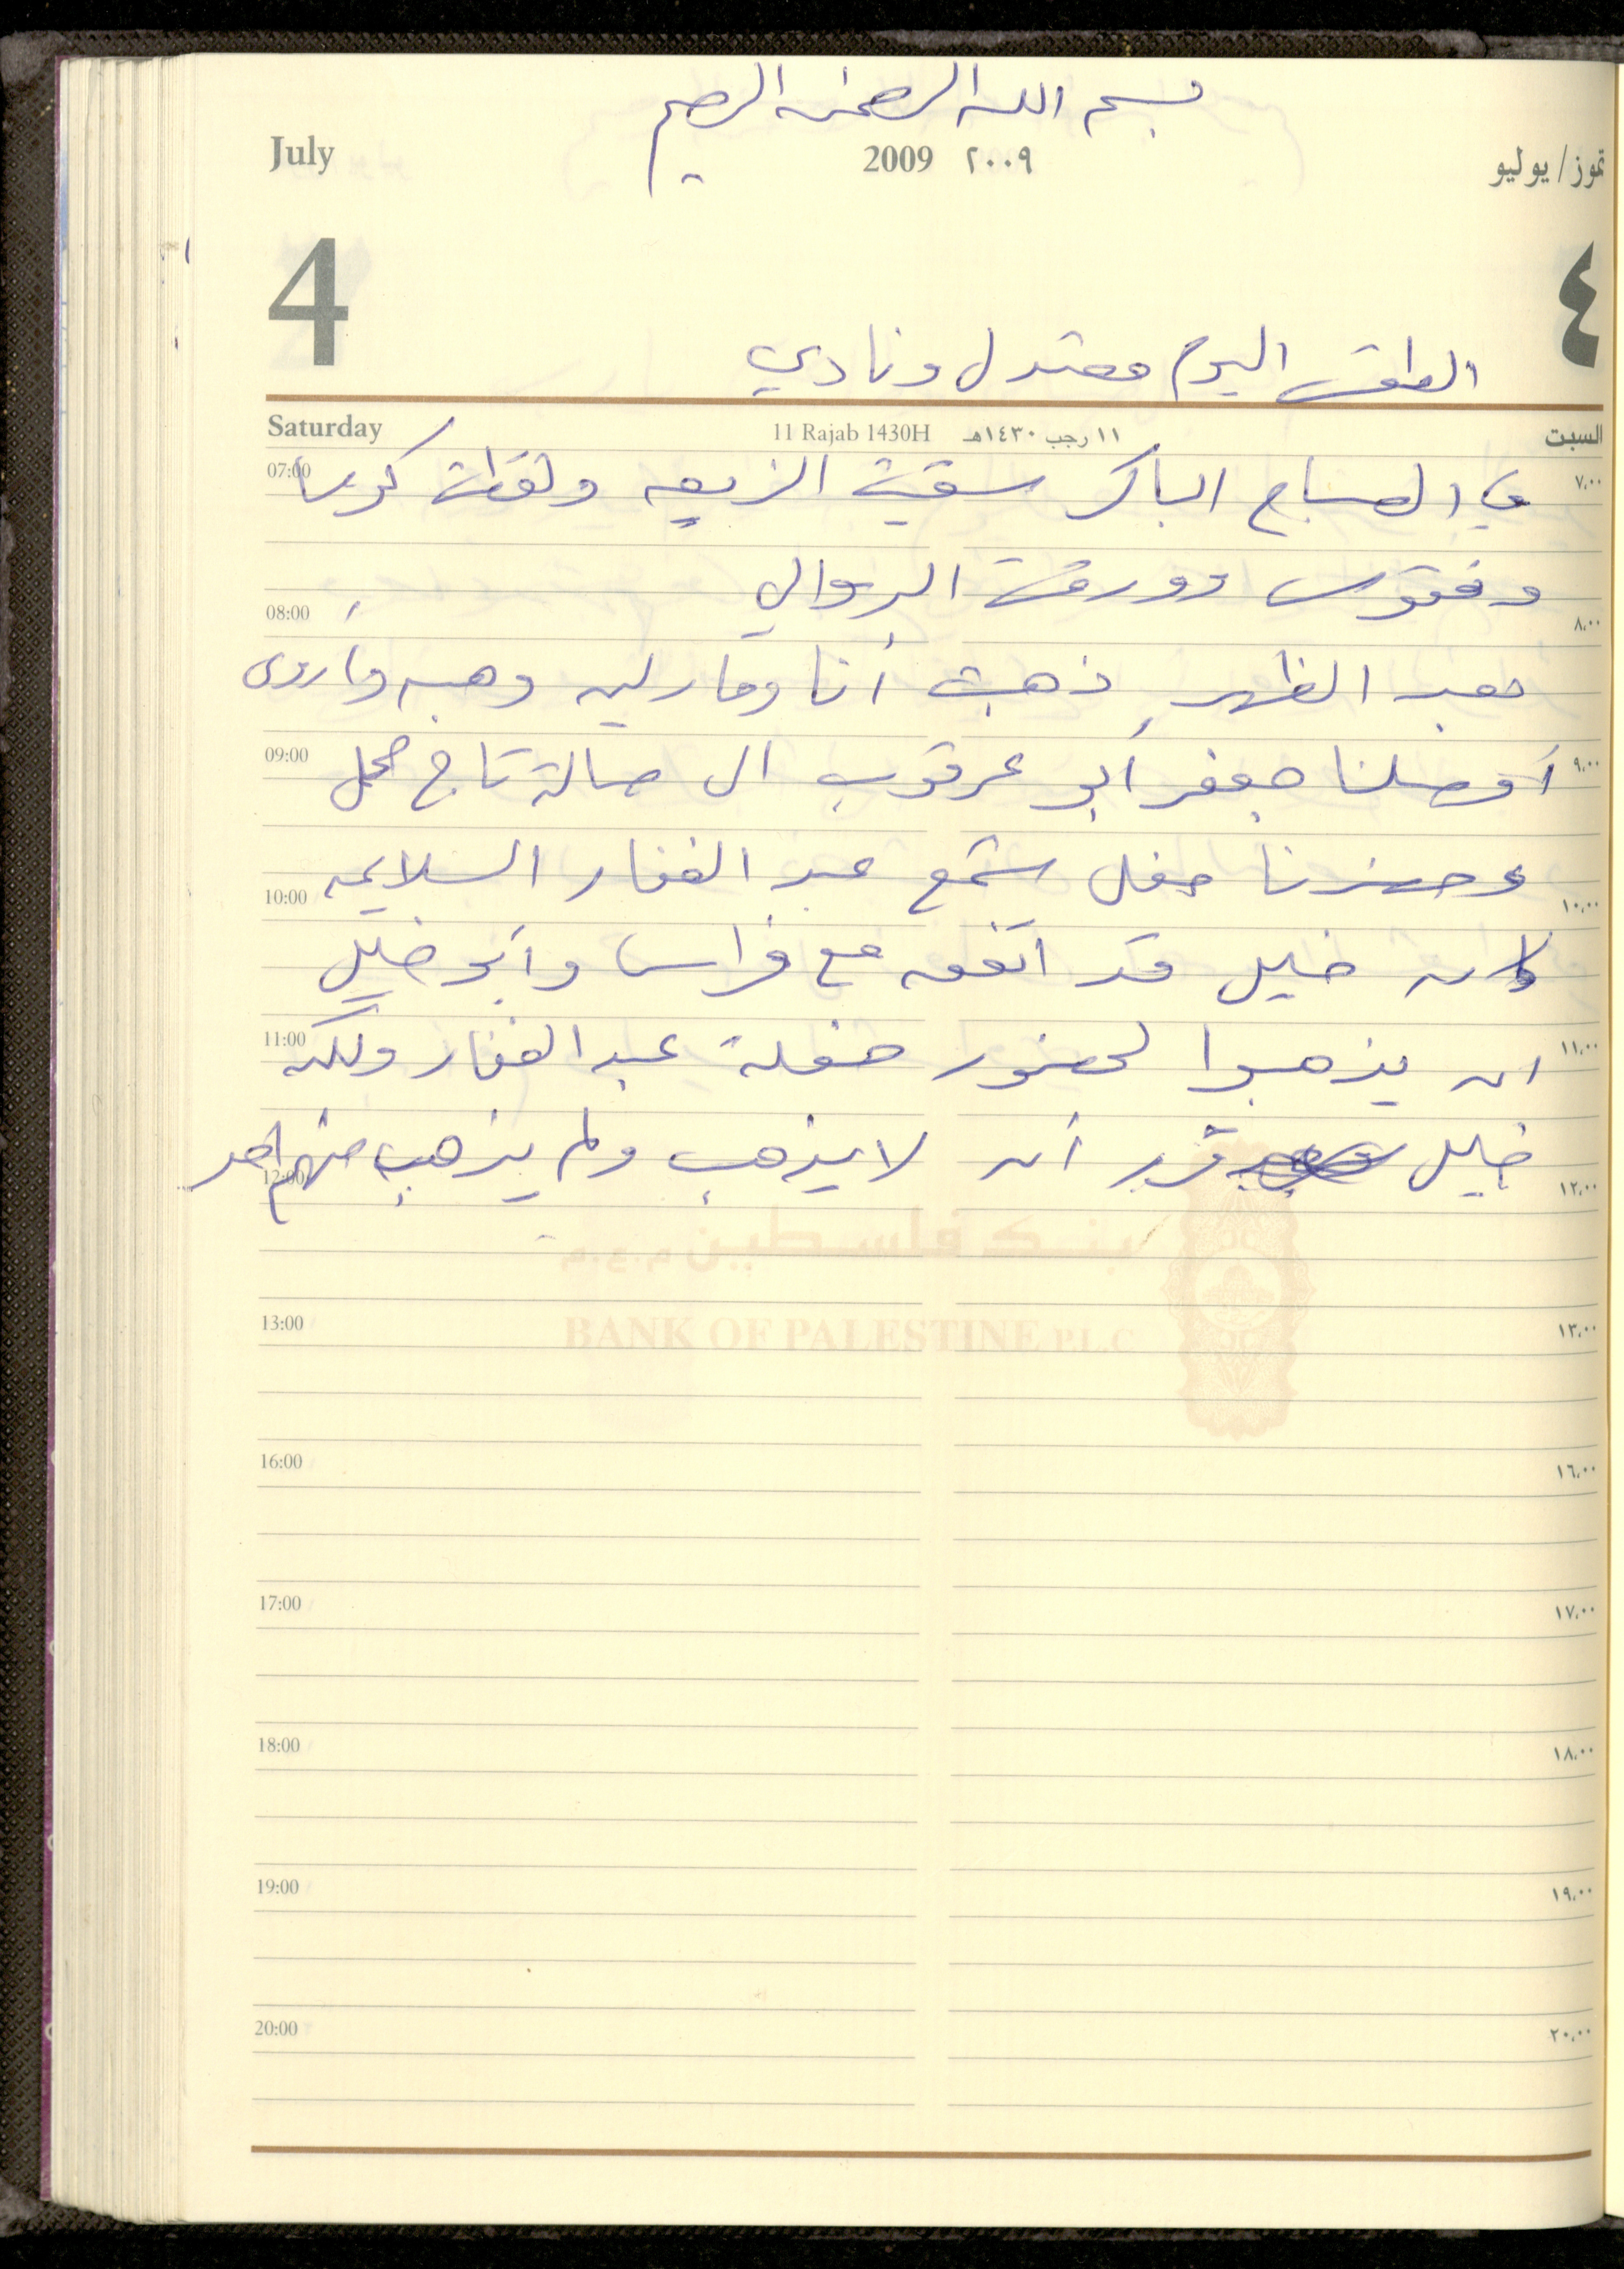 بسم الله الرحمن الرحيم
July 2009 ٢٠٠٩ تموز/يوليو
4 ٤
الطقس اليوم معتدل ونادي
Saturday 11 Rajab 1430H ١١ رجب ١٤٣٠هـ السبت
07:00 في الصباح الباكر سقيت الزريعه ولقطت كوسا ٧،٠٠
وفقوس وورقت الدوالي
08:00 ٨،٠٠
بعد الظهر ذهبت أنا ومارلين وهبه وأروى
09:00 أوصلنا جعفر أبو عرقوب الى صالة تاج محل ٩،٠٠
وحضرنا حفل شمع عبد الغفار السلايمه
10:00 ١٠،٠٠
كان خليل قد اتفق مع فراس وأبو خليل
11:00 ان يذهبوا لحضور حفلة عبد الغفار ولكن ١١،٠٠
خليل قرر أن لا يذهب ولم يذهب منهم احد
12:00 ١٢،٠٠
بنك فلسطين م.ع.م
13:00 ١٣،٠٠
BANK OF PALESTINE P.L.C
16:00 ١٦،٠٠
17:00 ١٧،٠٠
18:00 ١٨،٠٠
19:00 ١٩،٠٠
20:00 ٢٠،٠٠